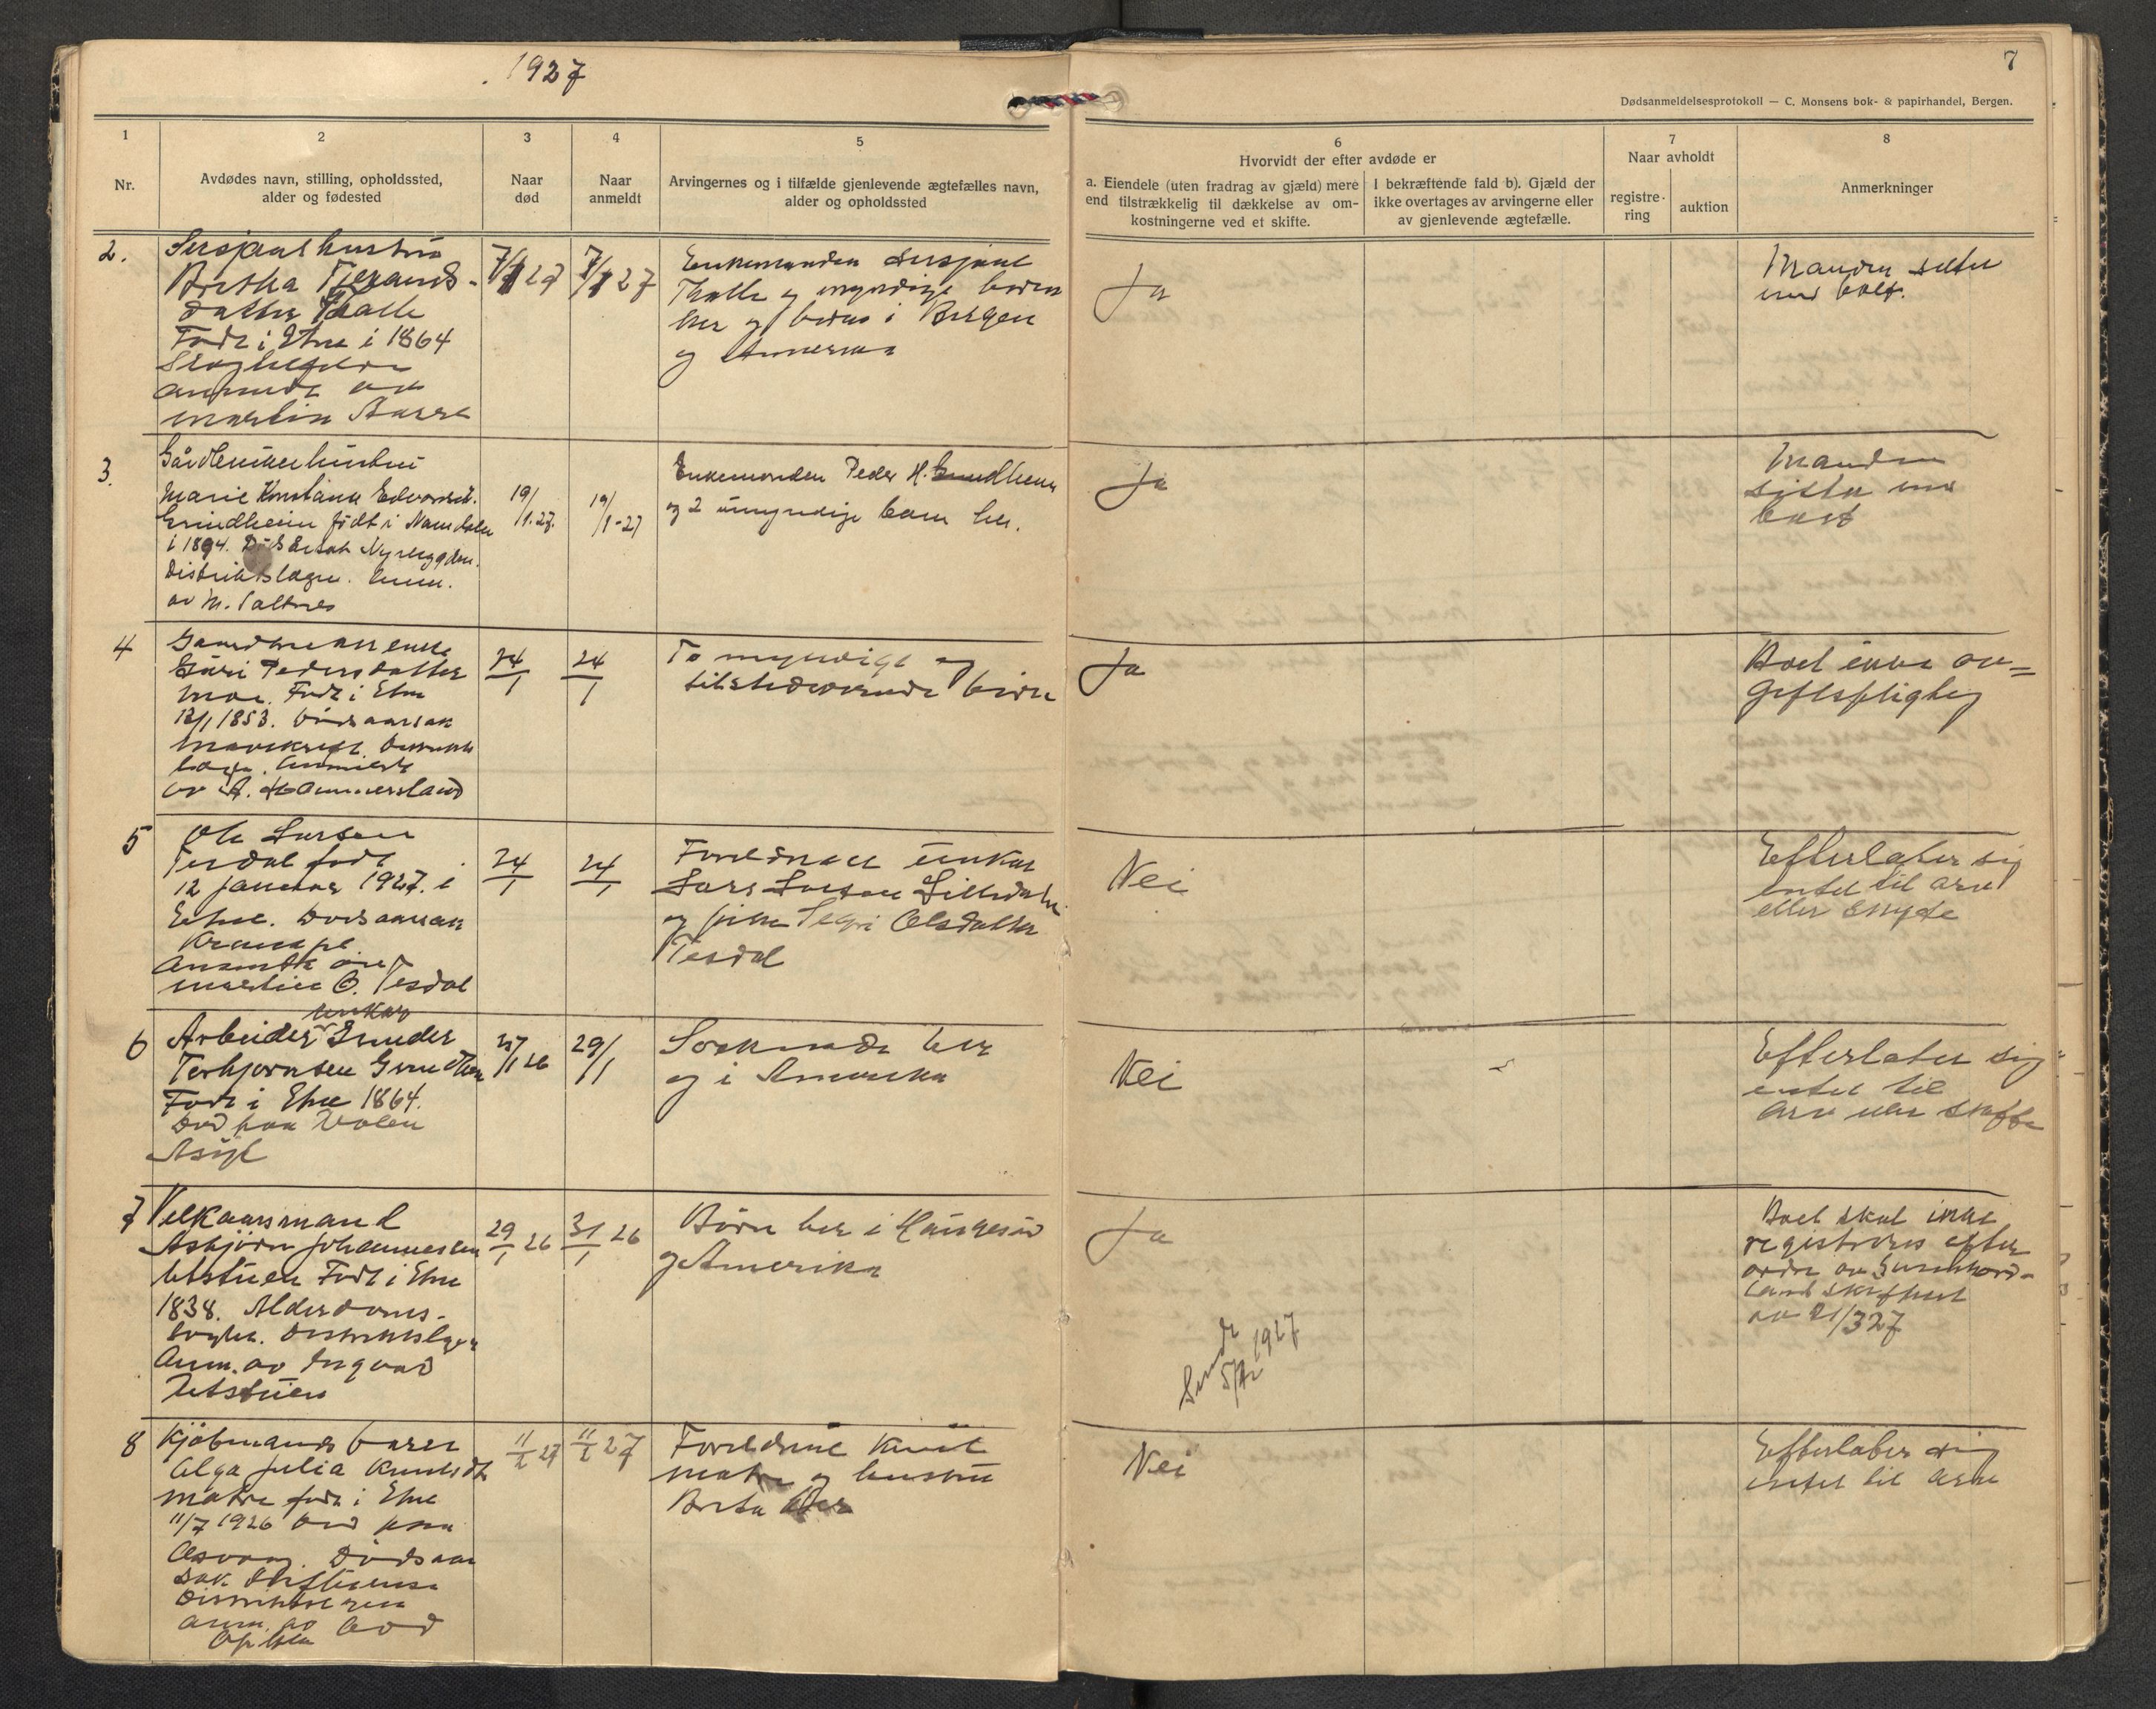 1927
7
Dødsanmeldelsesprotokoll — C. Monsens bok- & papirhandel, Bergen.
1
Nr.
2
Avdødes navn, stilling, opholdssted,
alder og fødested
3
Naar
død
4
Naar
anmeldt
5
Arvingernes og i tilfælde gjenlevende ægtefælles navn,
alder og opholdssted
6
Hvorvidt der efter avdøde er
a. Eiendele (uten fradrag av gjæld) mere
end tilstrækkelig til dækkelse av om-
kostningerne ved et skifte.
I bekræftende fald b). Gjæld der
ikke overtages av arvingerne eller
av gjenlevende ægtefælle.
7
Naar avholdt
registre-
ring
auktion
8
Anmerkninger
2.
Sersjant hustru
Britha
datter
Født i Etne i 1864
anmeldt av
Martin
7/1 27
7/1 27
Enkemanden sersjant
og myndige børn
her og børn i Bergen
og Amerika
Ja
Manden sitter
med boet.
3.
Gårdbruker hustru
Marie Edvardsd.
Grindheim født i Namdalen
i 1894. Dødsårsak
Distriktslægen. Anm.
av M. Saltnes
19/1.27.
19/1-27
Enkemanden Peder H. Grindheim
og 2 umyndige barn her.
Ja
Manden
sitter med
boet
4
Gaardbruker enke
Guri Pedersdatter
Moe. Født i Etne
13/1 1853. Dødsaarsak
Mavekreft. Distrikts
læge. Anmeldt
av A. Hammersland
24/1
24/1
To myndige og
tilstedeværende børn
Ja
Boet ikke av=
giftspligtig
5
Ole Larsen
Tesdal født
12 januar 1927. i
Etne. Dødsaarsak
Krampe.
Anmeldt av
Martin O. Tesdal
24/1
24/1
Foreldrene ungkar
Lars Larsen Lilledal
og pike Olsdatter
Tesdal
Nei
Efterlater sig
intet til arv
eller skifte
6
ungkar
Arbeider Gunder
Torbjørnsen Grindheim
Født i Etne 1864.
Død paa Valen
Asyl
/1 26
29/1
Søskende her
og i Amerika
Nei
Efterlater sig
intet til
arv eller skifte
7
Velkaarsmand
Asbjørn Johannessen
Utstuen Født i Etne
1838. Alderdoms-
Distriktslægen
Anm. av Ingvald
Utstuen
29/1 26
31/1 26
Børn her i Haugesund
og Amerika
Ja
Sendt
5/4 1927
Boet skal ikke
registreres efter
ordre av Sunnhord-
land skifteret
av 21/3 27
8
Kjøbmands barn
Olga Julia Knutsdt
Matre født i Etne
11/7 1926 død paa
Dødsaar
sak
Distriktslægen
anm. av
11/2 27
11/2 27
Foreldrene Knut
Matre og hustru
Brita
Nei
Efterlater sig
intet til arv